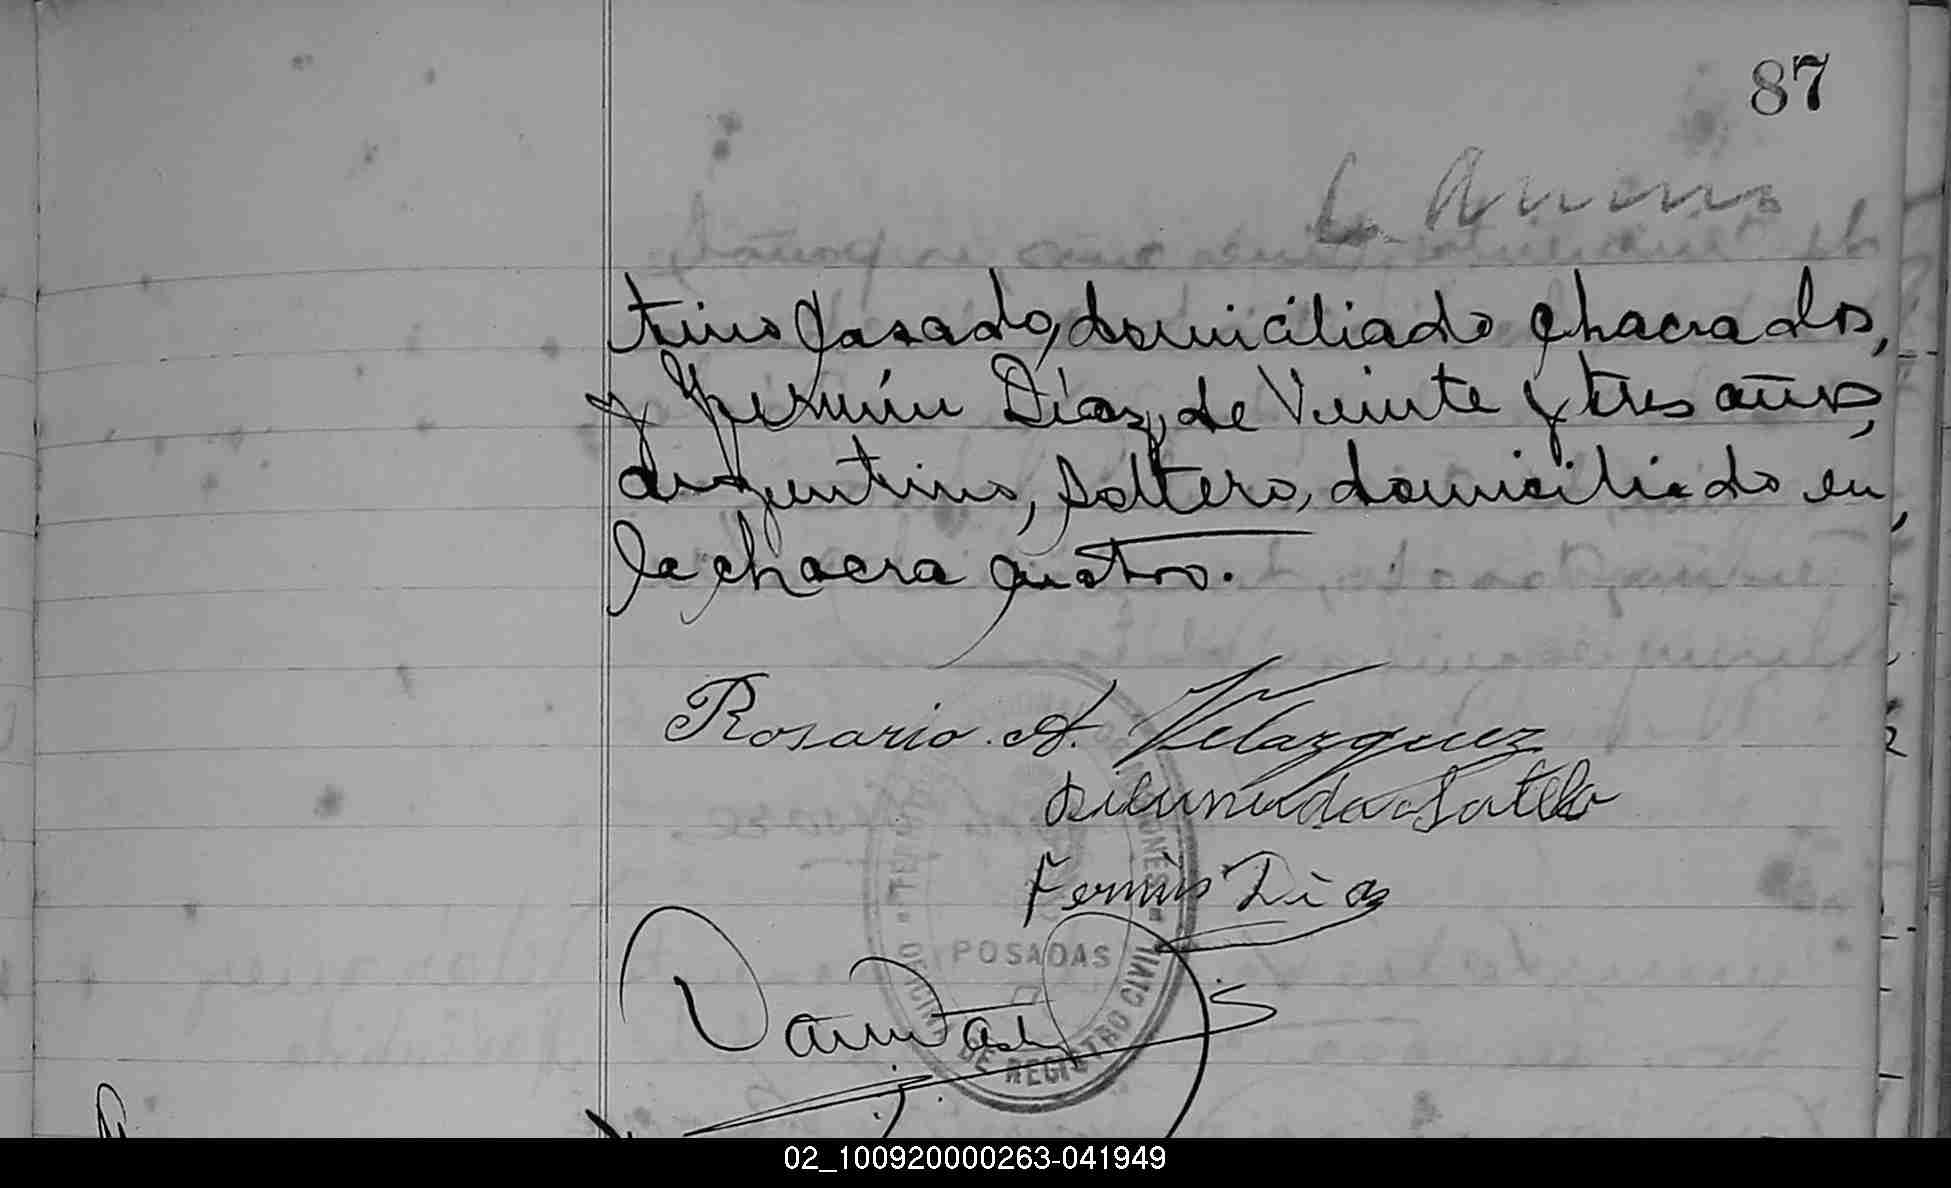 87
tino Casado, domiciliado Chacra dos,
y Fermín Díaz, de Veinte y tres años,
argentino, soltero, domiciliado en
la chacra cuatro.
Rosario A. Velazquez
Sotelo
Fermin Diaz
POSADAS
OFICINA DE REGISTRO CIVIL
02_100920000263-041949